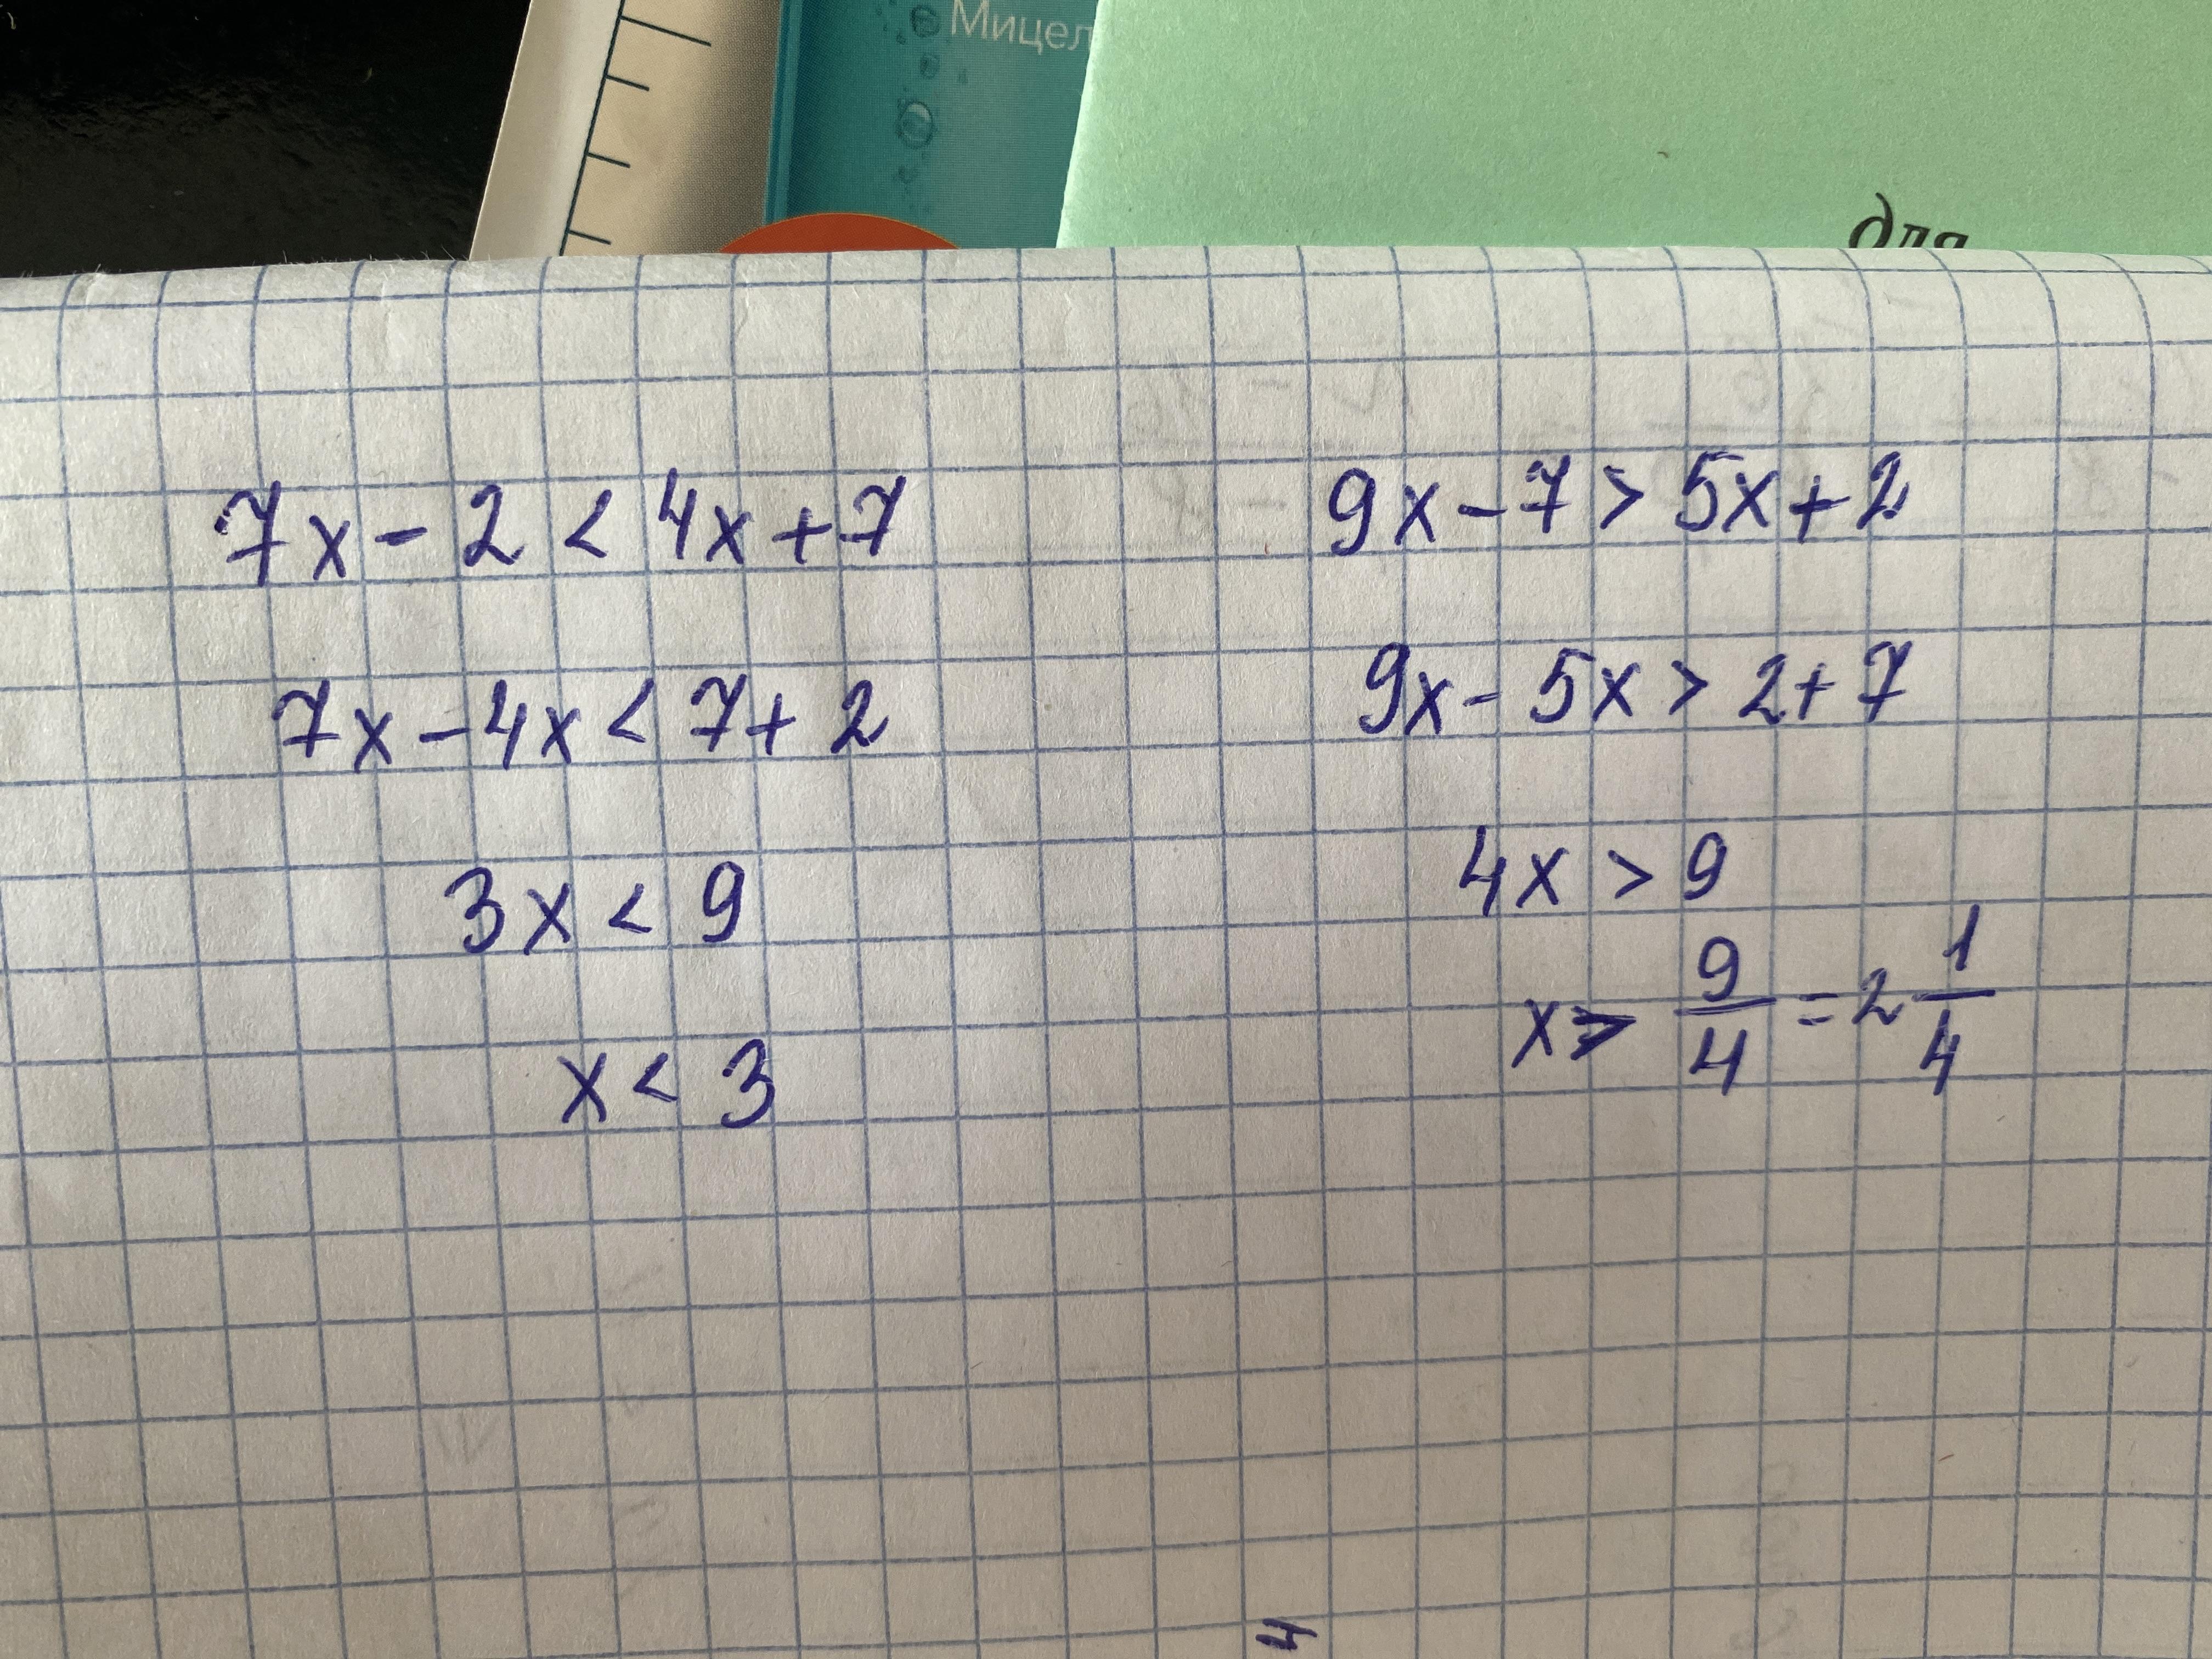 Мицел
для
7x - 2 < 4x + 7
7x - 4x < 7 + 2
3x < 9
x < 3
9x - 7 > 5x + 2
9x - 5x > 2 + 7
4x > 9
x > 9/4 = 2 1/4